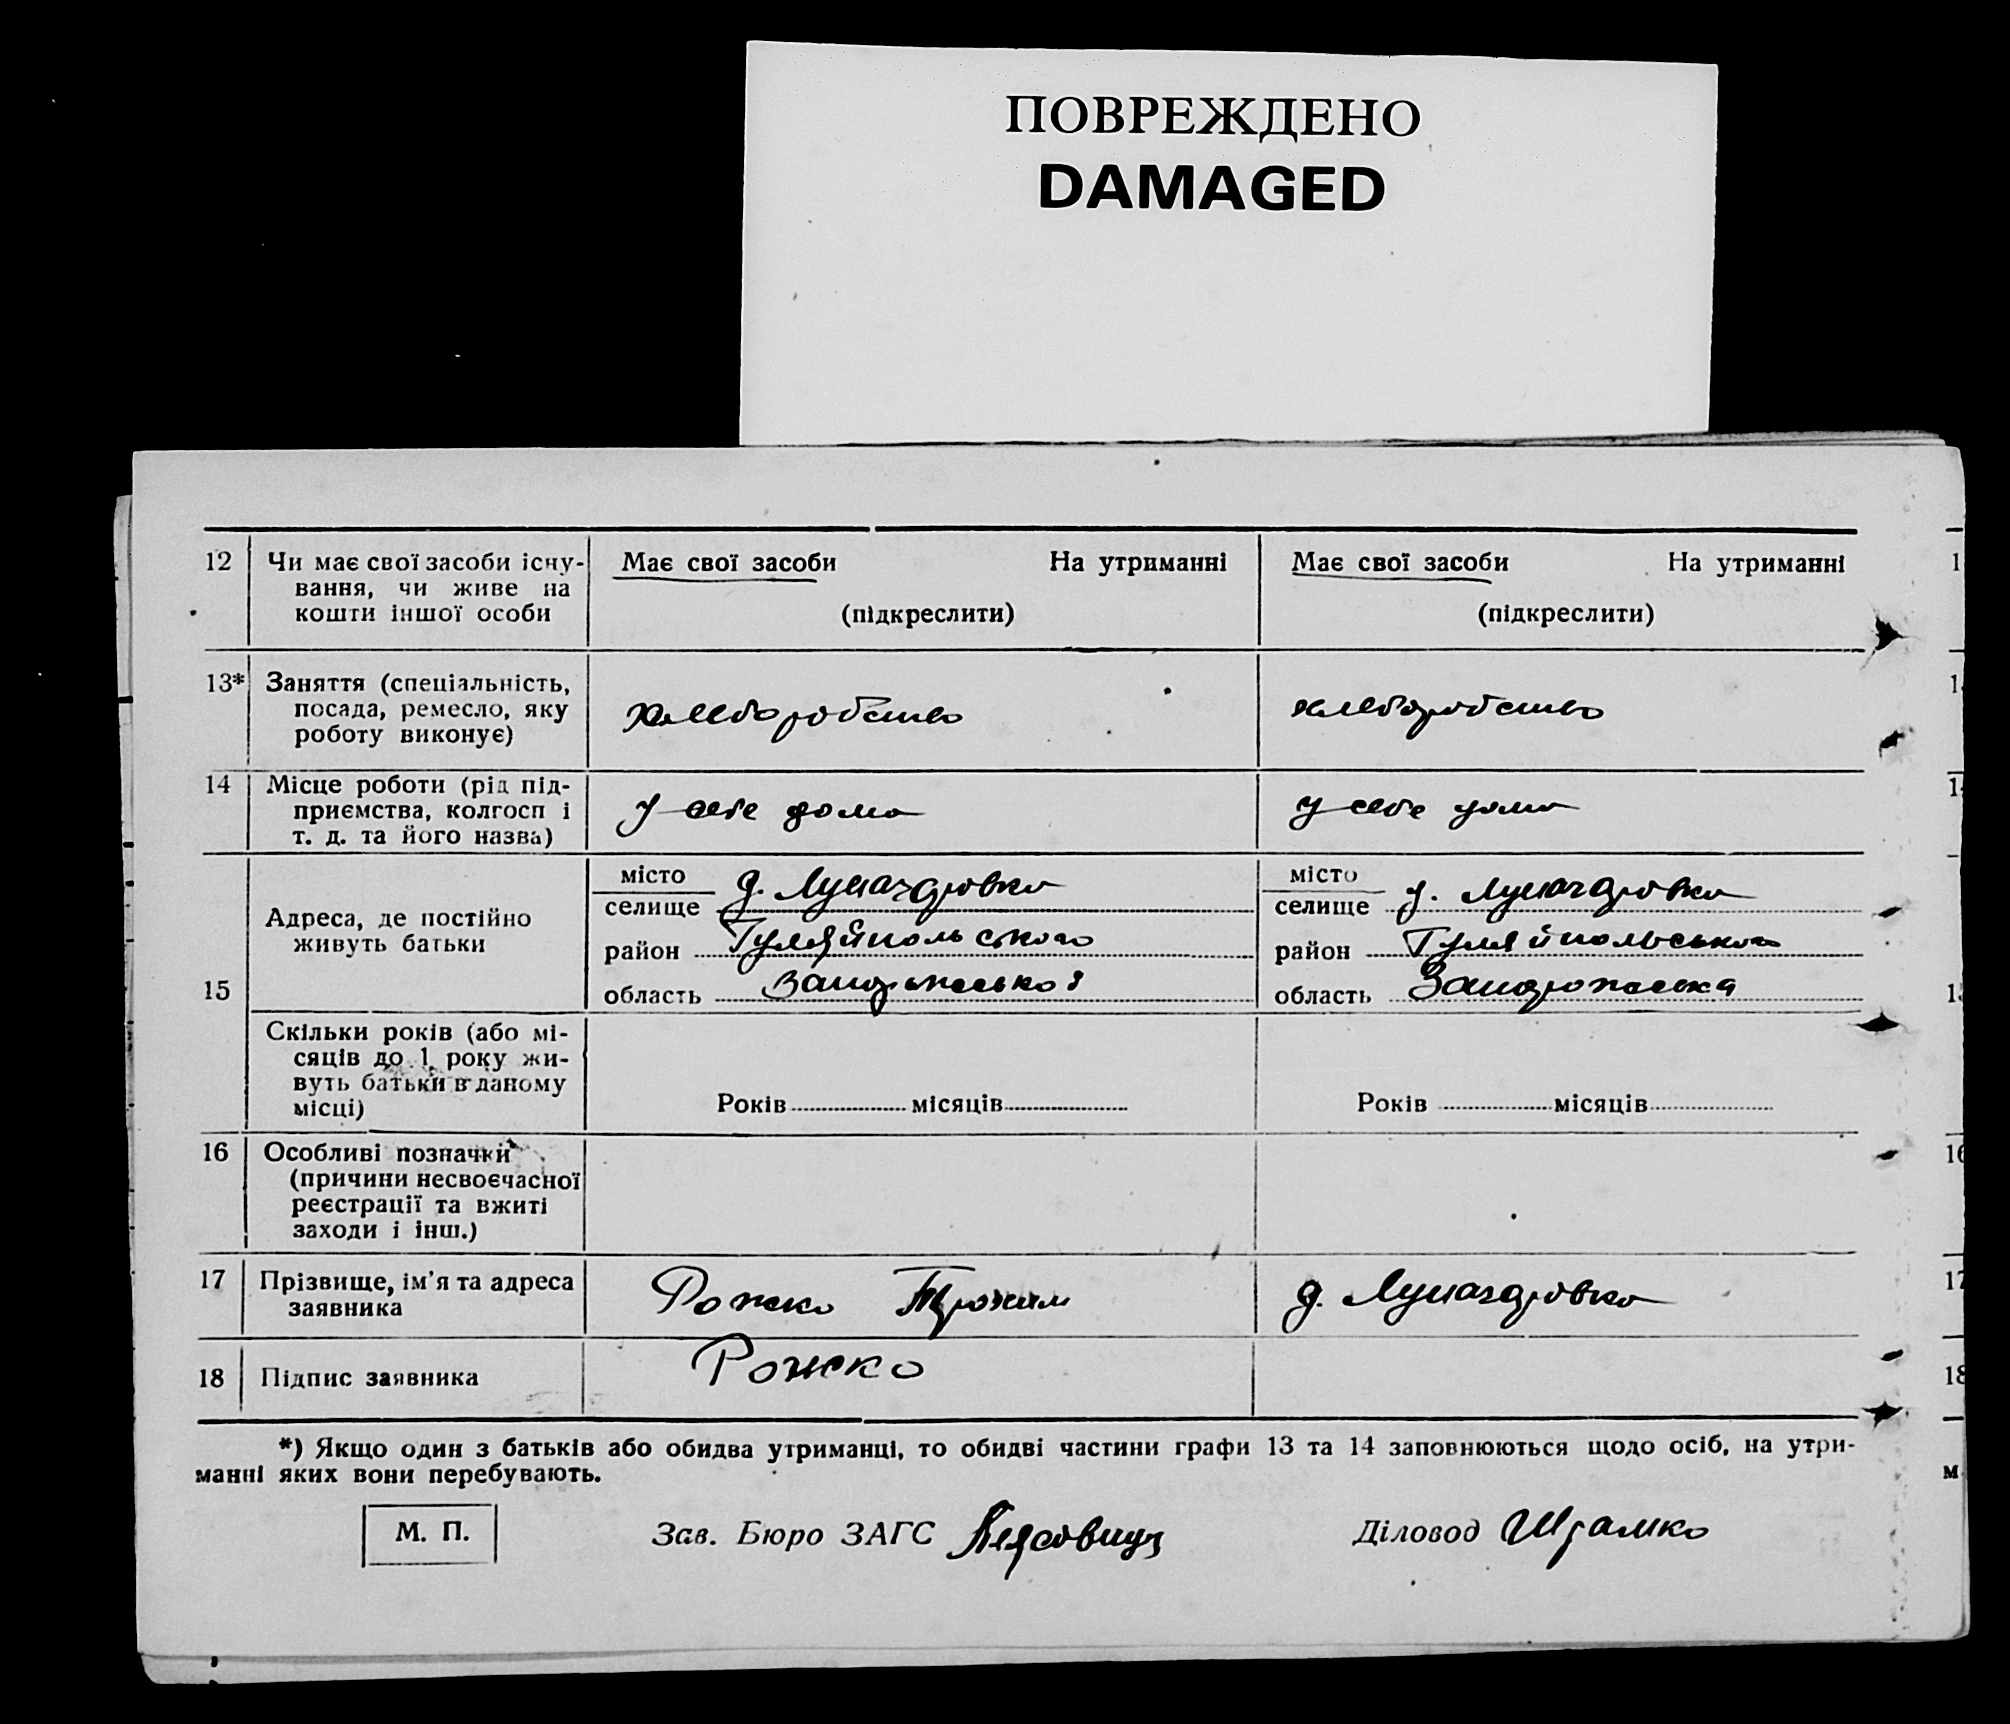 ПОВРЕЖДЕНО
DAMAGED
12 Чи має свої засоби існу-
вання, чи живе на
кошти іншої особи
Має свої засоби На утриманні
(підкреслити)
Має свої засоби На утриманні
(підкреслити)
13* Заняття (спеціальність,
посада, ремесло, яку
роботу виконує)
хлеборобство
хлеборобство
14 Місце роботи (рід під-
приємства, колгосп і
т. д. та його назва)
у себе дома
у себе дома
15
Адреса, де постійно
живуть батьки
місто
селище д. Луначаровка
район Гуляйпольського
область Запорожської
місто
селище д. Луначаровка
район Гуляйпольського
область Запорожська
Скільки років (або мі-
сяців до 1 року жи-
вуть батьки в даному
місці)
Років місяців
Років місяців
16 Особливі позначки
(причини несвоєчасної
реєстрації та вжиті
заходи і інш.)
17 Прізвище, ім'я та адреса
заявника
Рожко Трохим
д. Луначаровка
18 Підпис заявника
Рожко
*) Якщо один з батьків або обидва утриманці, то обидві частини графи 13 та 14 заповнюються щодо осіб, на утри-
манні яких вони перебувають.
М. П.
Зав. Бюро ЗАГС
Діловод Шрамко
16
17
18
м